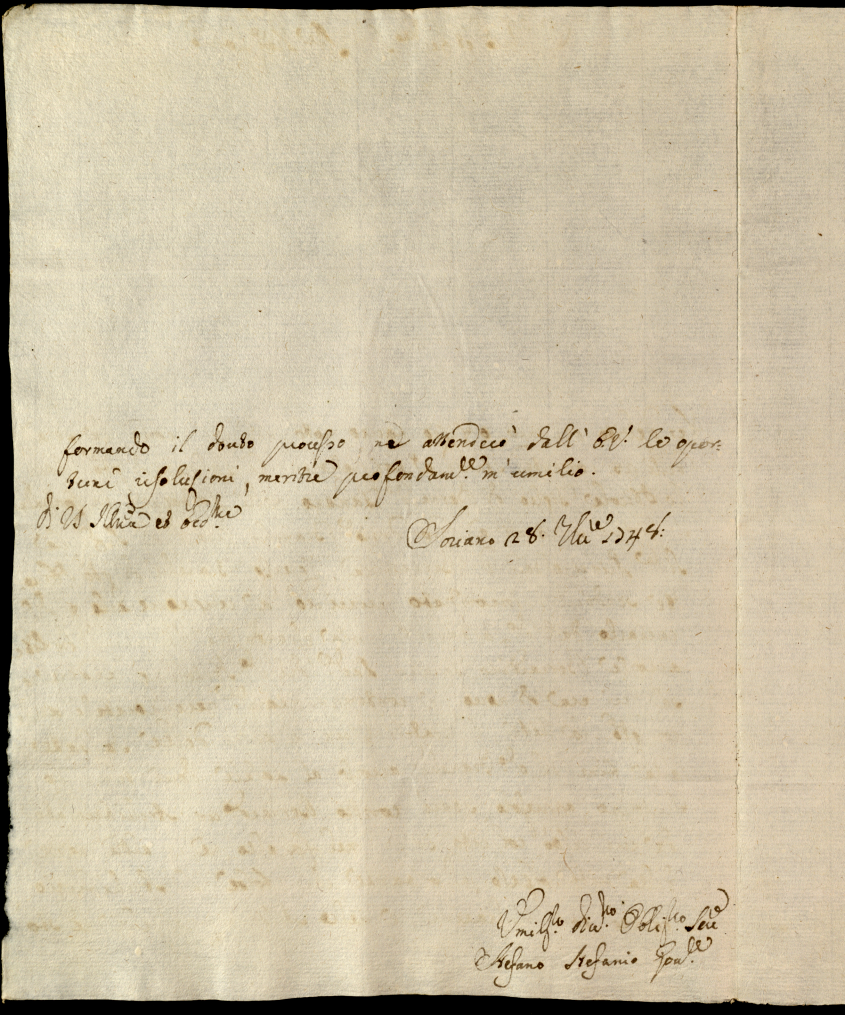 formando il douto processo ne attenderò dall' EV. le opor=
tune risoluzioni, mentre profondam.te m'umilio.
di V Ill.ma et
Soriano 28. 1748:
Umiliss.mo Obligt.mo Ser.e
Stefano Stefanio